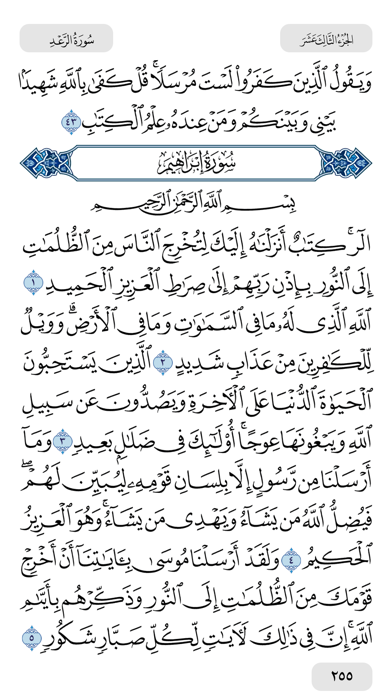 الجزء الثالث عشر
سورة الرعد
وَيَقُولُ ٱلَّذِينَ كَفَرُواْ لَسۡتَ مُرۡسَلٗاۚ قُلۡ كَفَىٰ بِٱللَّهِ شَهِيدَۢا
بَيۡنِي وَبَيۡنَكُمۡ وَمَنۡ عِندَهُۥ عِلۡمُ ٱلۡكِتَٰبِ ٤٣
سورة إبراهيم
بِسۡمِ ٱللَّهِ ٱلرَّحۡمَٰنِ ٱلرَّحِيمِ
الٓرۚ كِتَٰبٌ أَنزَلۡنَٰهُ إِلَيۡكَ لِتُخۡرِجَ ٱلنَّاسَ مِنَ ٱلظُّلُمَٰتِ
إِلَى ٱلنُّورِ بِإِذۡنِ رَبِّهِمۡ إِلَىٰ صِرَٰطِ ٱلۡعَزِيزِ ٱلۡحَمِيدِ ١
ٱللَّهِ ٱلَّذِي لَهُۥ مَا فِي ٱلسَّمَٰوَٰتِ وَمَا فِي ٱلۡأَرۡضِۗ وَوَيۡلٞ
لِّلۡكَٰفِرِينَ مِنۡ عَذَابٖ شَدِيدٍ ٢ ٱلَّذِينَ يَسۡتَحِبُّونَ
ٱلۡحَيَوٰةَ ٱلدُّنۡيَا عَلَى ٱلۡأٓخِرَةِ وَيَصُدُّونَ عَن سَبِيلِ
ٱللَّهِ وَيَبۡغُونَهَا عِوَجًاۚ أُوْلَٰٓئِكَ فِي ضَلَٰلِۭ بَعِيدٖ ٣ وَمَآ
أَرۡسَلۡنَا مِن رَّسُولٍ إِلَّا بِلِسَانِ قَوۡمِهِۦ لِيُبَيِّنَ لَهُمۡۖ
فَيُضِلُّ ٱللَّهُ مَن يَشَآءُ وَيَهۡدِي مَن يَشَآءُۚ وَهُوَ ٱلۡعَزِيزُ
ٱلۡحَكِيمُ ٤ وَلَقَدۡ أَرۡسَلۡنَا مُوسَىٰ بِـَٔايَٰتِنَآ أَنۡ أَخۡرِجۡ
قَوۡمَكَ مِنَ ٱلظُّلُمَٰتِ إِلَى ٱلنُّورِ وَذَكِّرۡهُم بِأَيَّىٰمِ
ٱللَّهِۚ إِنَّ فِي ذَٰلِكَ لَأٓيَٰتٖ لِّكُلِّ صَبَّارٖ شَكُورٖ ٥
٢٥٥